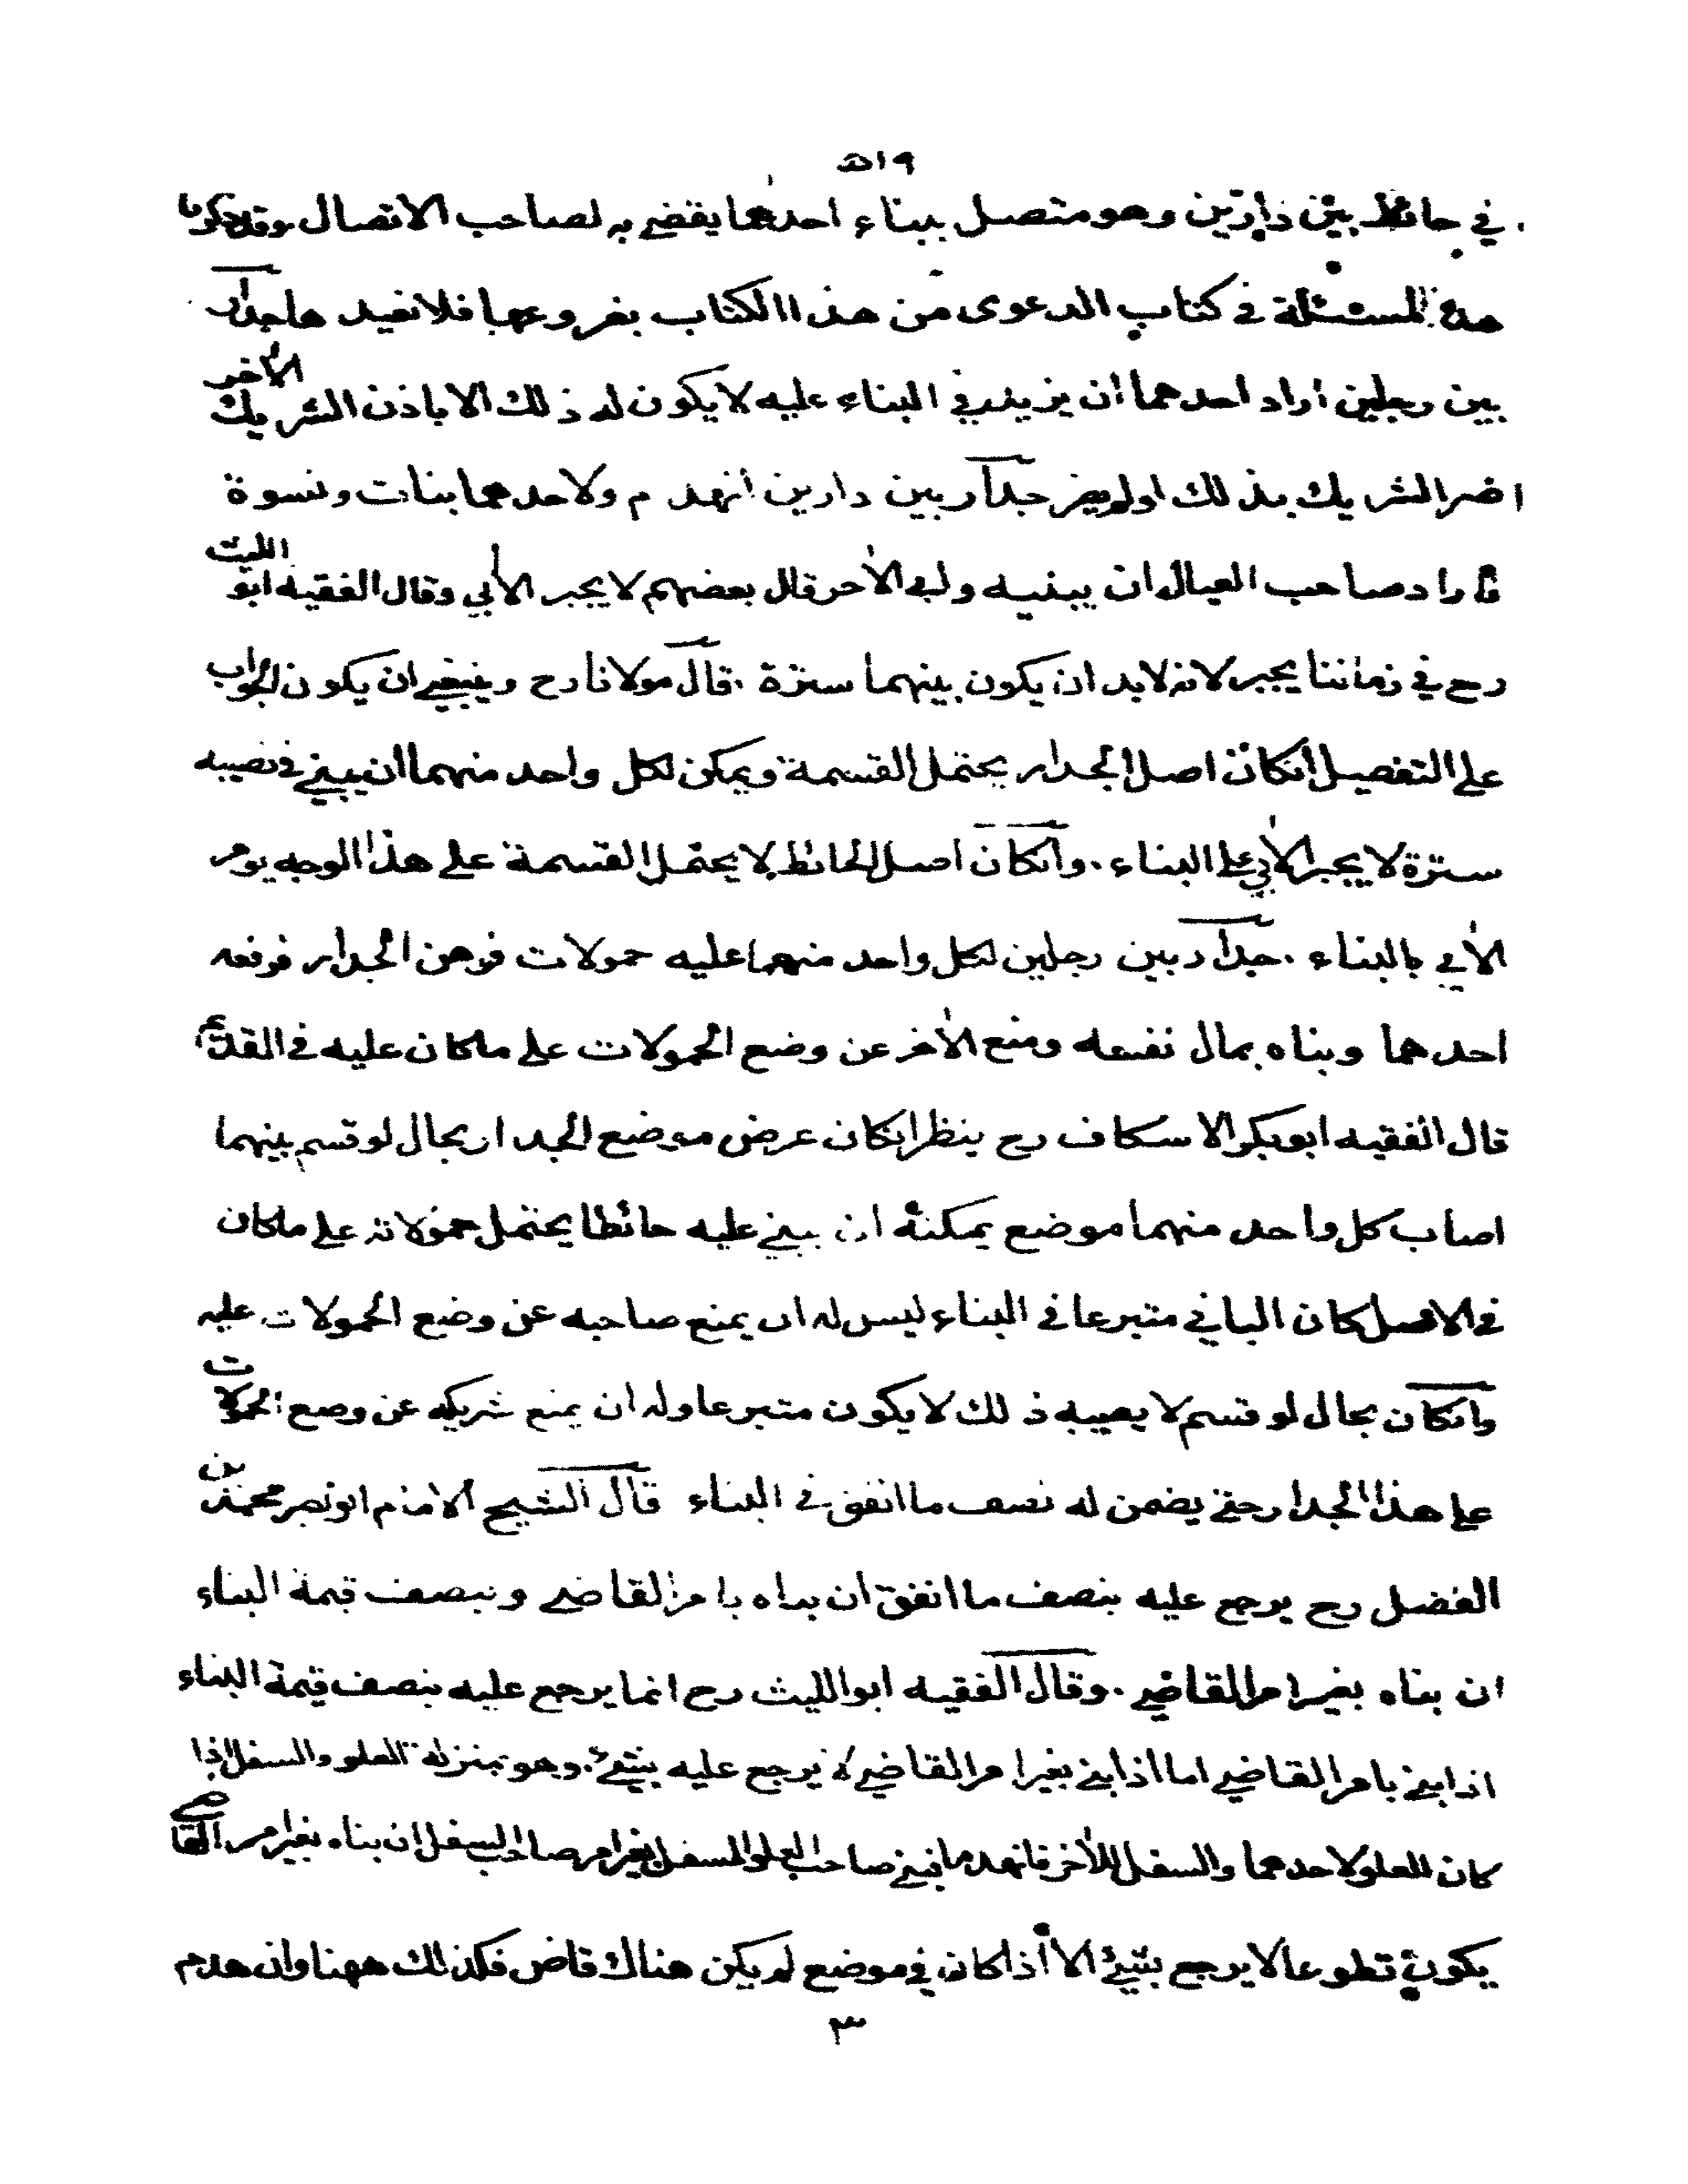 في حائط بين دارين وهو متصل ببناء احدهما يقضي به لصاحب الاتصال وقد ذكرنا
هذه المسئلة في كتاب الدعوى من هذا الكتاب بفروعها فلا نعيدها جدار
بين رجلين اراد احدهما ان يزيد في البناء عليه لا يكون له ذلك الا باذن الشريك الآخر
اضر الشريك بذلك او لم يضر جدار بين دارين انهدم ولاحدهما بنات ونسوة
فاراد صاحب العيال ان يبنيه وابى الآخر قال بعضهم لا يجبر الآبي وقال الفقيه ابو الليث
رح في زماننا يجبر لانه لابد ان يكون بينهما سترة . قال مولانا رح وينبغي ان يكون الجواب
على التفصيل انكان اصل الجدار يحتمل القسمة ويمكن لكل واحد منهما ان يبني في نصيبه
سترة لا يجبر الآبي على البناء . وانكان اصل الحائط لا يحتمل القسمة على هذا الوجه يومر
الآبي بالبناء . جدار بين رجلين لكل واحد منهما عليه حمولات فوهن الجدار فرفعه
احدهما وبناه بمال نفسه ومنع الآخر عن وضع الحمولات على ما كان عليه في القديم
قال الفقيه ابو بكر الاسكاف رح ينظر انكان عرض موضع الجدار بحال لو قسم بينهما
اصاب كل واحد منهما موضع يمكنه ان يبني عليه حائطا يحتمل حمولاته على ما كان
في الاصل كان الباني متبرعا في البناء ليس له ان يمنع صاحبه عن وضع الحمولات عليه
وانكان بحال لو قسم لا يصيبه ذلك لا يكون متبرعا وله ان يمنع شريكه عن وضع الحمولات
على هذا الجدار حتى يضمن له نصف ما انفق في البناء قال الشيخ الامام ابو نصر محمد بن
الفضل رح يرجع عليه بنصف ما انفق ان بناه بامر القاضي وبنصف قيمة البناء
ان بناه بغير امر القاضي . وقال الفقيه ابو الليث رح انما يرجع عليه بنصف قيمة البناء
اذا بنى بامر القاضي اما اذا بنى بغير امر القاضي لا يرجع عليه بشيء . وهو بمنزلة العلو والسفل اذا
كان العلو لاحدهما والسفل للآخر فانهدما فبنى صاحب العلو السفل بغير امر صاحب السفل ان بناه بغير امر القاضي
يكون تطوعا لا يرجع بشيء الا اذا كان في موضع لم يكن هناك قاض فكذلك ههنا وان هدم
٣